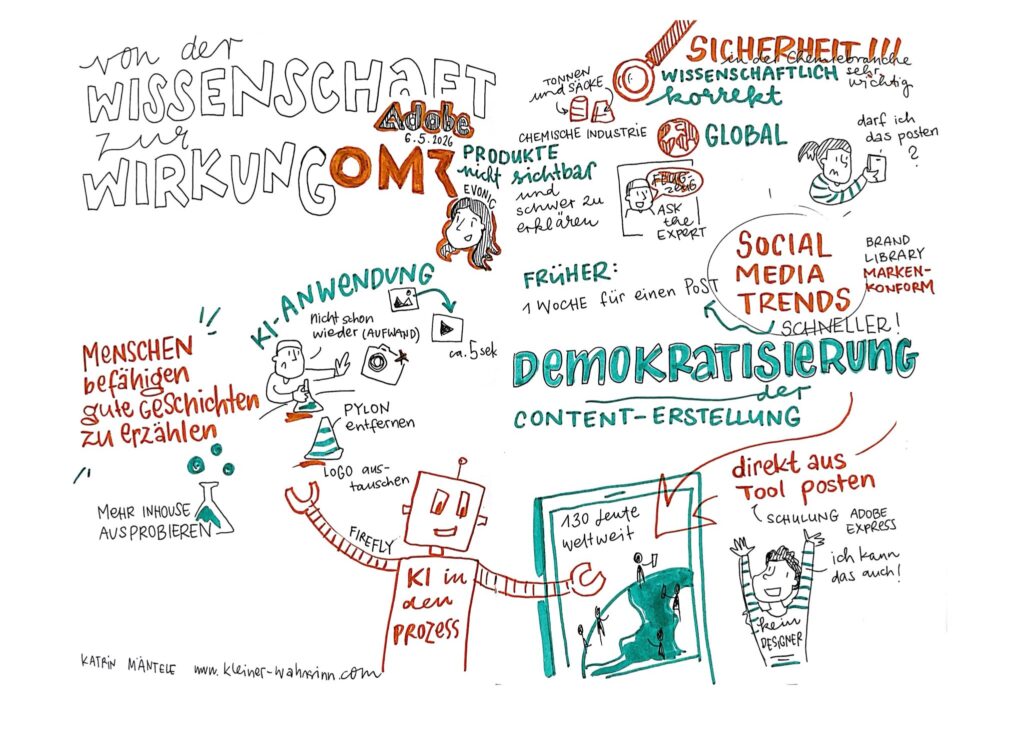 von der
WISSENSCHAFT
zur
WIRKUNG
Adobe
6.5.2026
OMR
EVONIC
PRODUKTE
nicht sichtbar
und
schwer zu
erklären
TONNEN
und SÄCKE
CHEMISCHE INDUSTRIE
SICHERHEIT!!!
in der Chemiebranche
sehr
wichtig
WISSENSCHAFTLICH
korrekt
GLOBAL
FLUG-
ZEUG
ASK
the
EXPERT
darf ich
das posten
?
FRÜHER:
1 WOCHE für einen POST
SOCIAL
MEDIA
TRENDS
BRAND
LIBRARY
MARKEN-
KONFORM
SCHNELLER!
DEMOKRATISIERUNG
der
CONTENT-ERSTELLUNG
KI-ANWENDUNG
nicht schon
wieder (AUFWAND)
ca. 5 sek
MENSCHEN
befähigen
gute GESCHICHTEN
zu erzählen
PYLON
entfernen
LOGO aus-
tauschen
MEHR INHOUSE
AUSPROBIEREN
FIREFLY
KI in
den
PROZESS
130 Leute
weltweit
direkt aus
Tool posten
SCHULUNG ADOBE
EXPRESS
ich kann
das auch!
kein
DESIGNER
KATRIN MÄNTELE www.kleiner-wahnsinn.com